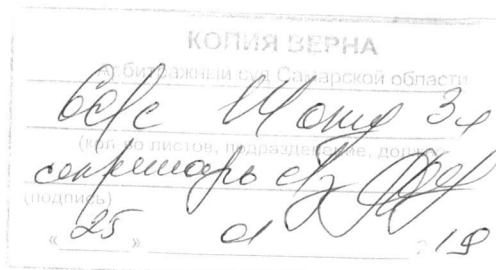 КОПИЯ ВЕРНА
Арбитражный суд Самарской области
(кол-во листов, подразделение, должн
секретарь с/з
(подпись)
« 25 » 01 19